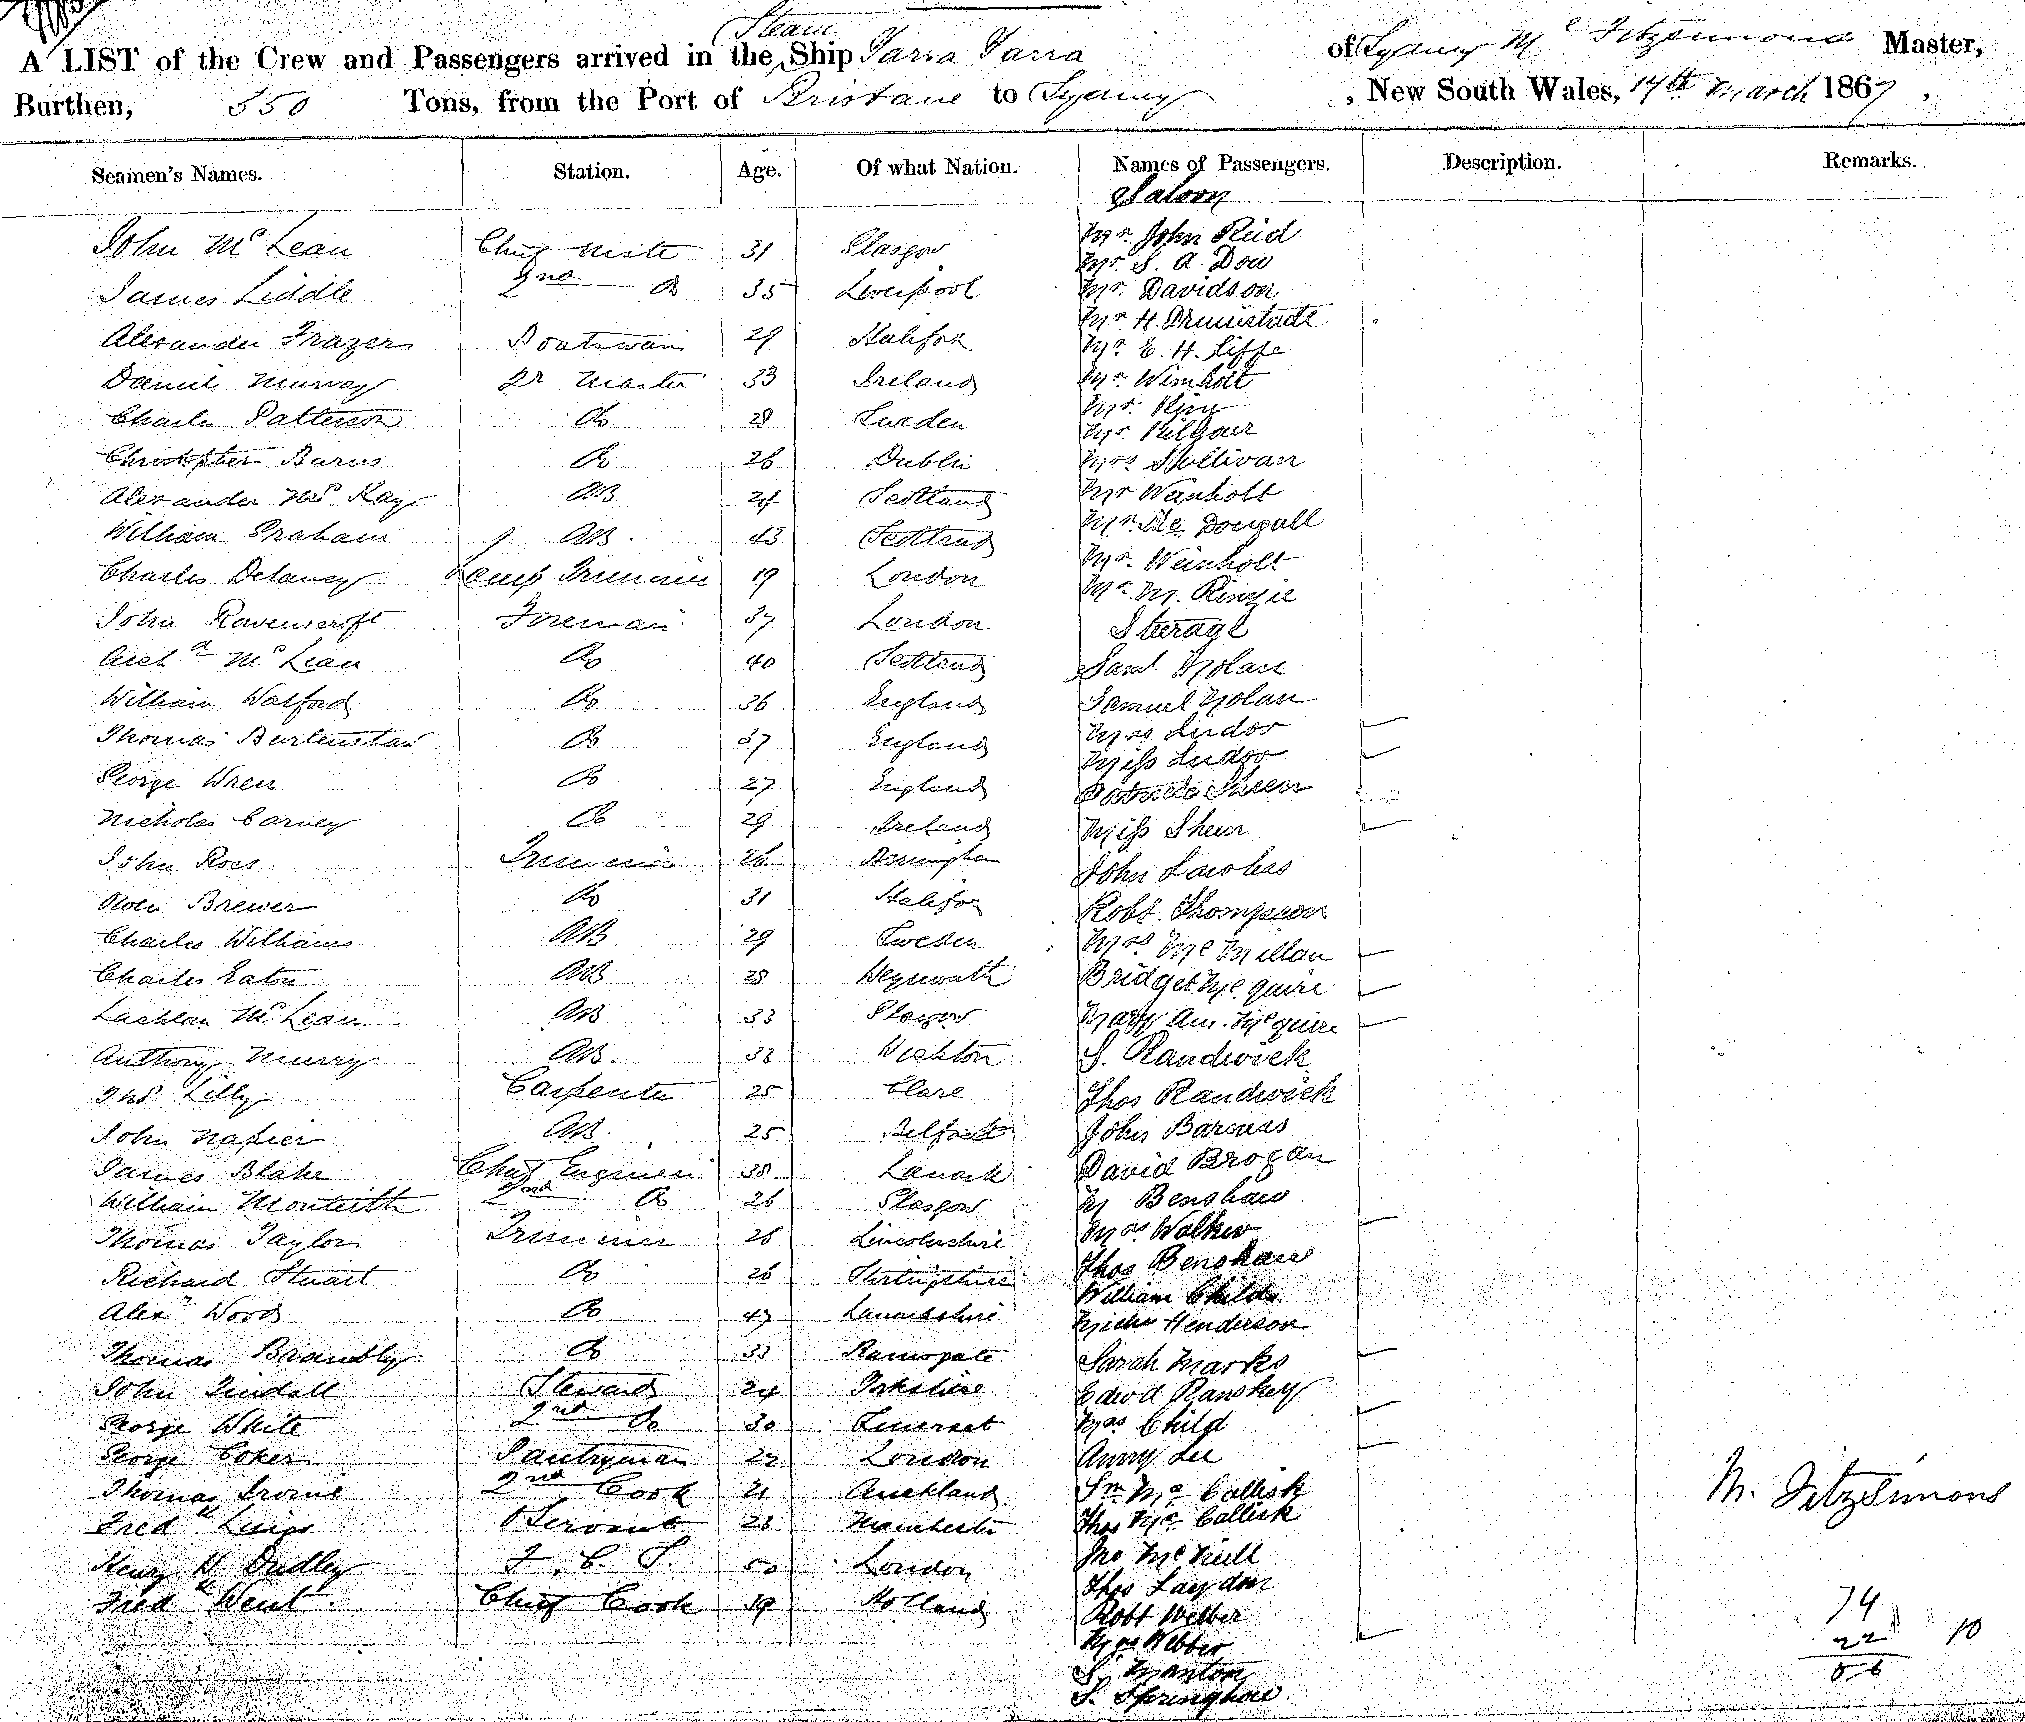 Steam
A LIST of the Crew and Passengers arrived in the Ship Yarra Yarra of Sydney Mc Fitzsimmons Master,
Burthen, 550 Tons, from the Port of Brisbane to Sydney, New South Wales, 17th March 1867,
Seamen's Names. Station. Age. Of what Nation. Names of Passengers. Description. Remarks.
Saloon
John Mc Lean Chief Mate 31 Glasgow Mr. John Reid
Mr. S. A. Dow
James Liddle 2nd Do 35 Liverpool Mr. Davidson
Mr H.
Alexander Frazer Boatswain 29 Halifax Mr. E. H.
Daniel Murray Qr Master 33 Ireland Mr. Wimholt
Mr. King
Charles Patterson Do 28 Sweden Mr. Kilgour
Christopher Burns Do 26 Dublin Mrs Sullivan
Alexander Mc Kay AB 24 Scotland Mr Wienholt
Mr. Mc Dowall
William Graham AB 43 Scotland Mr. Weinholt
Charles Delaney Lamp Trimmer 19 London Mr. M.
John Ravenscroft Fireman 37 London Steerage
Archd Mc Lean Do 40 Scotland Saml Nolan
William Walford Do 36 England Samuel Nolan
Mrs Ludor
Thomas Do 37 England Miss Ludor
George Wren Do 27 England Patrick Sheen
Nicholas Carney Do 29 Ireland Miss Sheen
John Ross Trimmer 26 Birmingham John Jacobs
Brewer Do 31 Halifax Robt. Thompson
Charles Williams AB 29 Sweden Mrs Mc Millan
Charles Eaton AB 28 Bridget Mc quire
Lachlan Mc Lean AB 33 Glasgow Mary Ann Mc quire
Anthony Murry AB. 33 S. Randwick
Thos Lilly Carpenter 25 Clare Thos Randwick
John Napier AB 25 Belfast John Barnes
James Blake Chief Engineer 38 Lanark David Brogan
William Monteith 2nd Do 26 Glasgow M Benshaw
Thomas Taylor Trimmer 26 Lincolnshire Mrs Walker
Thos Benshaw
Richard Stuart Do 26 Stirlingshire William Childs
Alexr Wood Do 47 Lanarkshire Henderson
Thomas Brambly Do 33 Ramsgate Sarah Marks
John Tindall Steward 24 Yorkshire Edwd Ranskey
George White 2nd Do 30 Somerset Mrs Child
George Coker Pantryman 22 London Lee
Thomas Irvine 2nd Cook 21 Auckland Mc Callisk
Fred Servant 23 Manchester Thos Mc Callisk
Jno Mc Neill
Henry W Dudley F. C. S. London Thos Laydon
Fred Went Chief Cook 39 Holland Robt Webber
Mrs Webber
S. Manton
S.
M. Fitzsimons
74
22 10
56